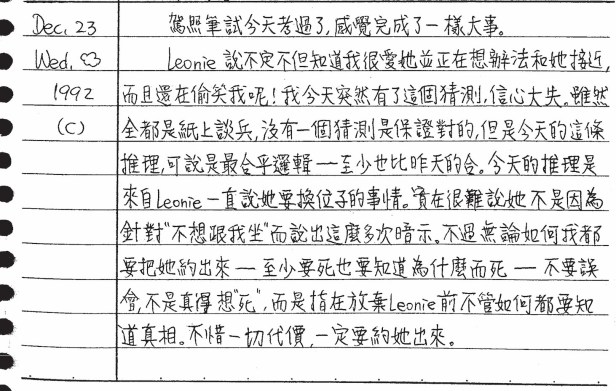 Dec. 23 駕照筆試今天考過了,感覺完成了一樣大事。
Wed. Leonie 說不定不但知道我很愛她並正在想辦法和她接近,
1992 而且還在偷笑我呢!我今天突然有了這個猜測,信心大失。雖然
(C) 全都是紙上談兵,沒有一個猜測是保證對的,但是今天的這條
推理,可說是最合乎邏輯—至少也比昨天的合。今天的推理是
來自Leonie一直說她要換位子的事情。實在很難說她不是因為
針對"不想跟我坐"而說出這麼多次暗示。不過無論如何我都
要把她約出來—至少要死也要知道為什麼而死—不要誤
會,不是真得想"死",而是指在放棄Leonie前不管如何都要知
道真相。不惜一切代價,一定要約她出來。